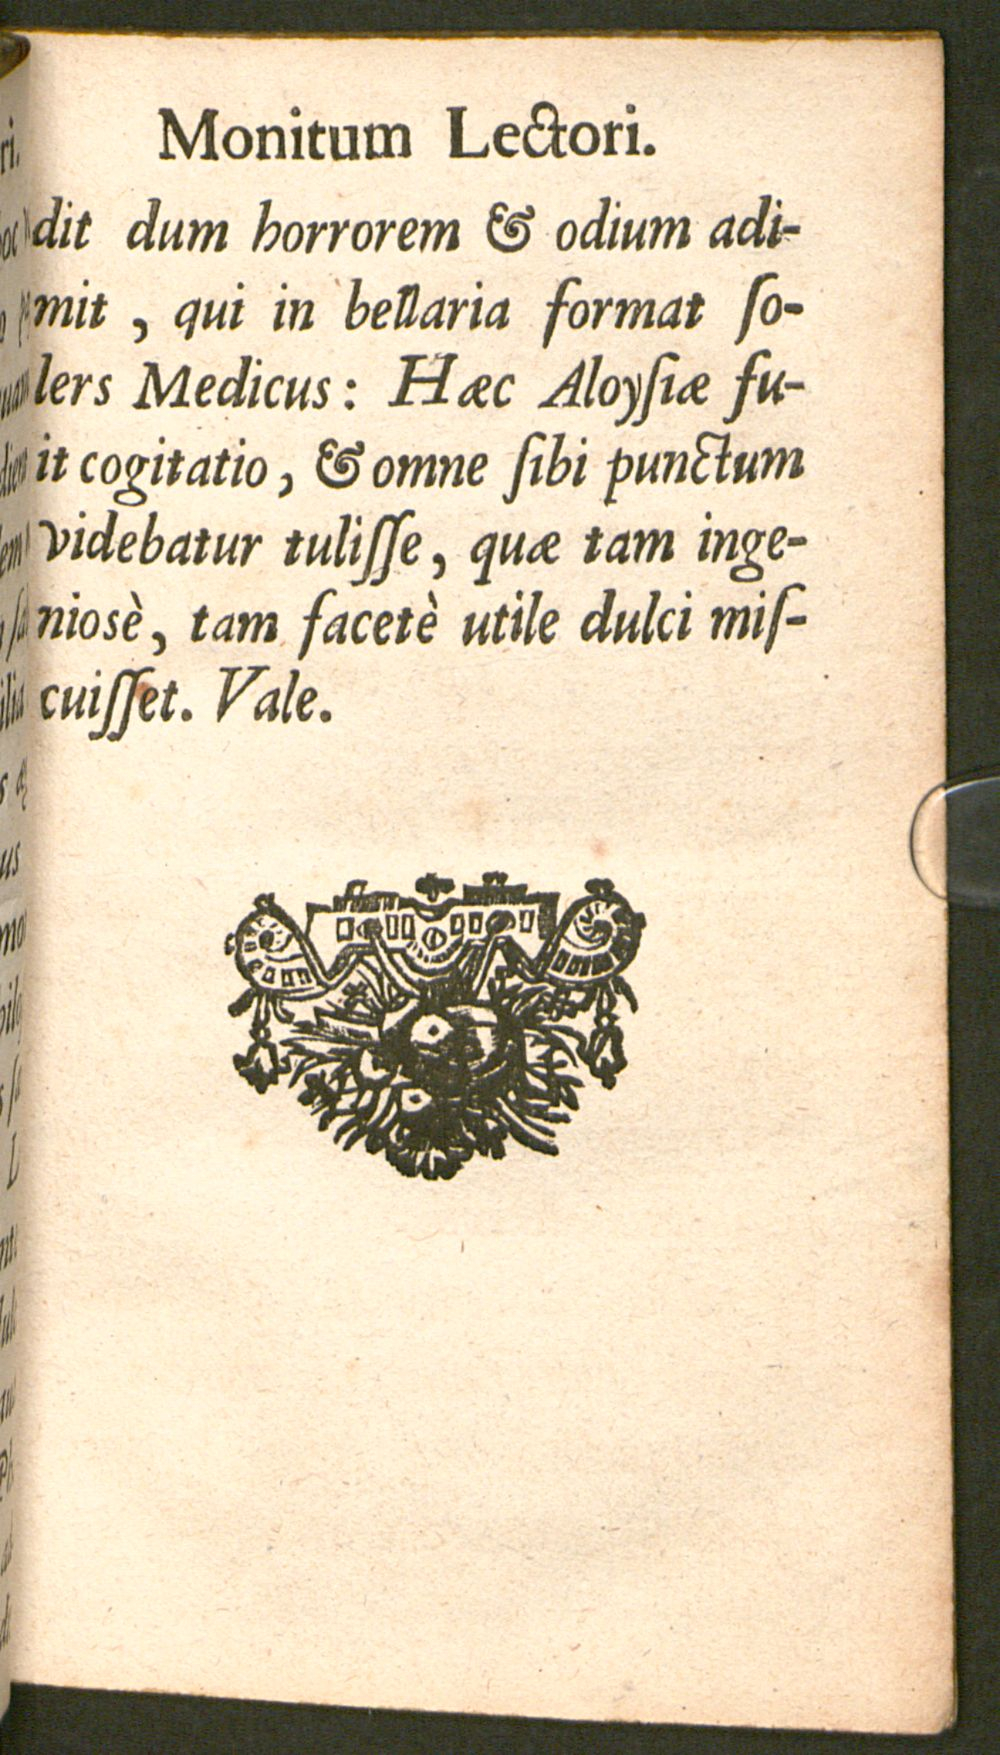 Monitum Lectori.
dit dum horrorem & odium adi-
mit , qui in bellaria format ſo-
lers Medicus : Hæc Aloyſiæ fu-
it cogitatio , & omne ſibi punctum
videbatur tuliſſe , quæ tam inge-
niosè , tam facetè utile dulci miſ-
cuiſſet. Vale.